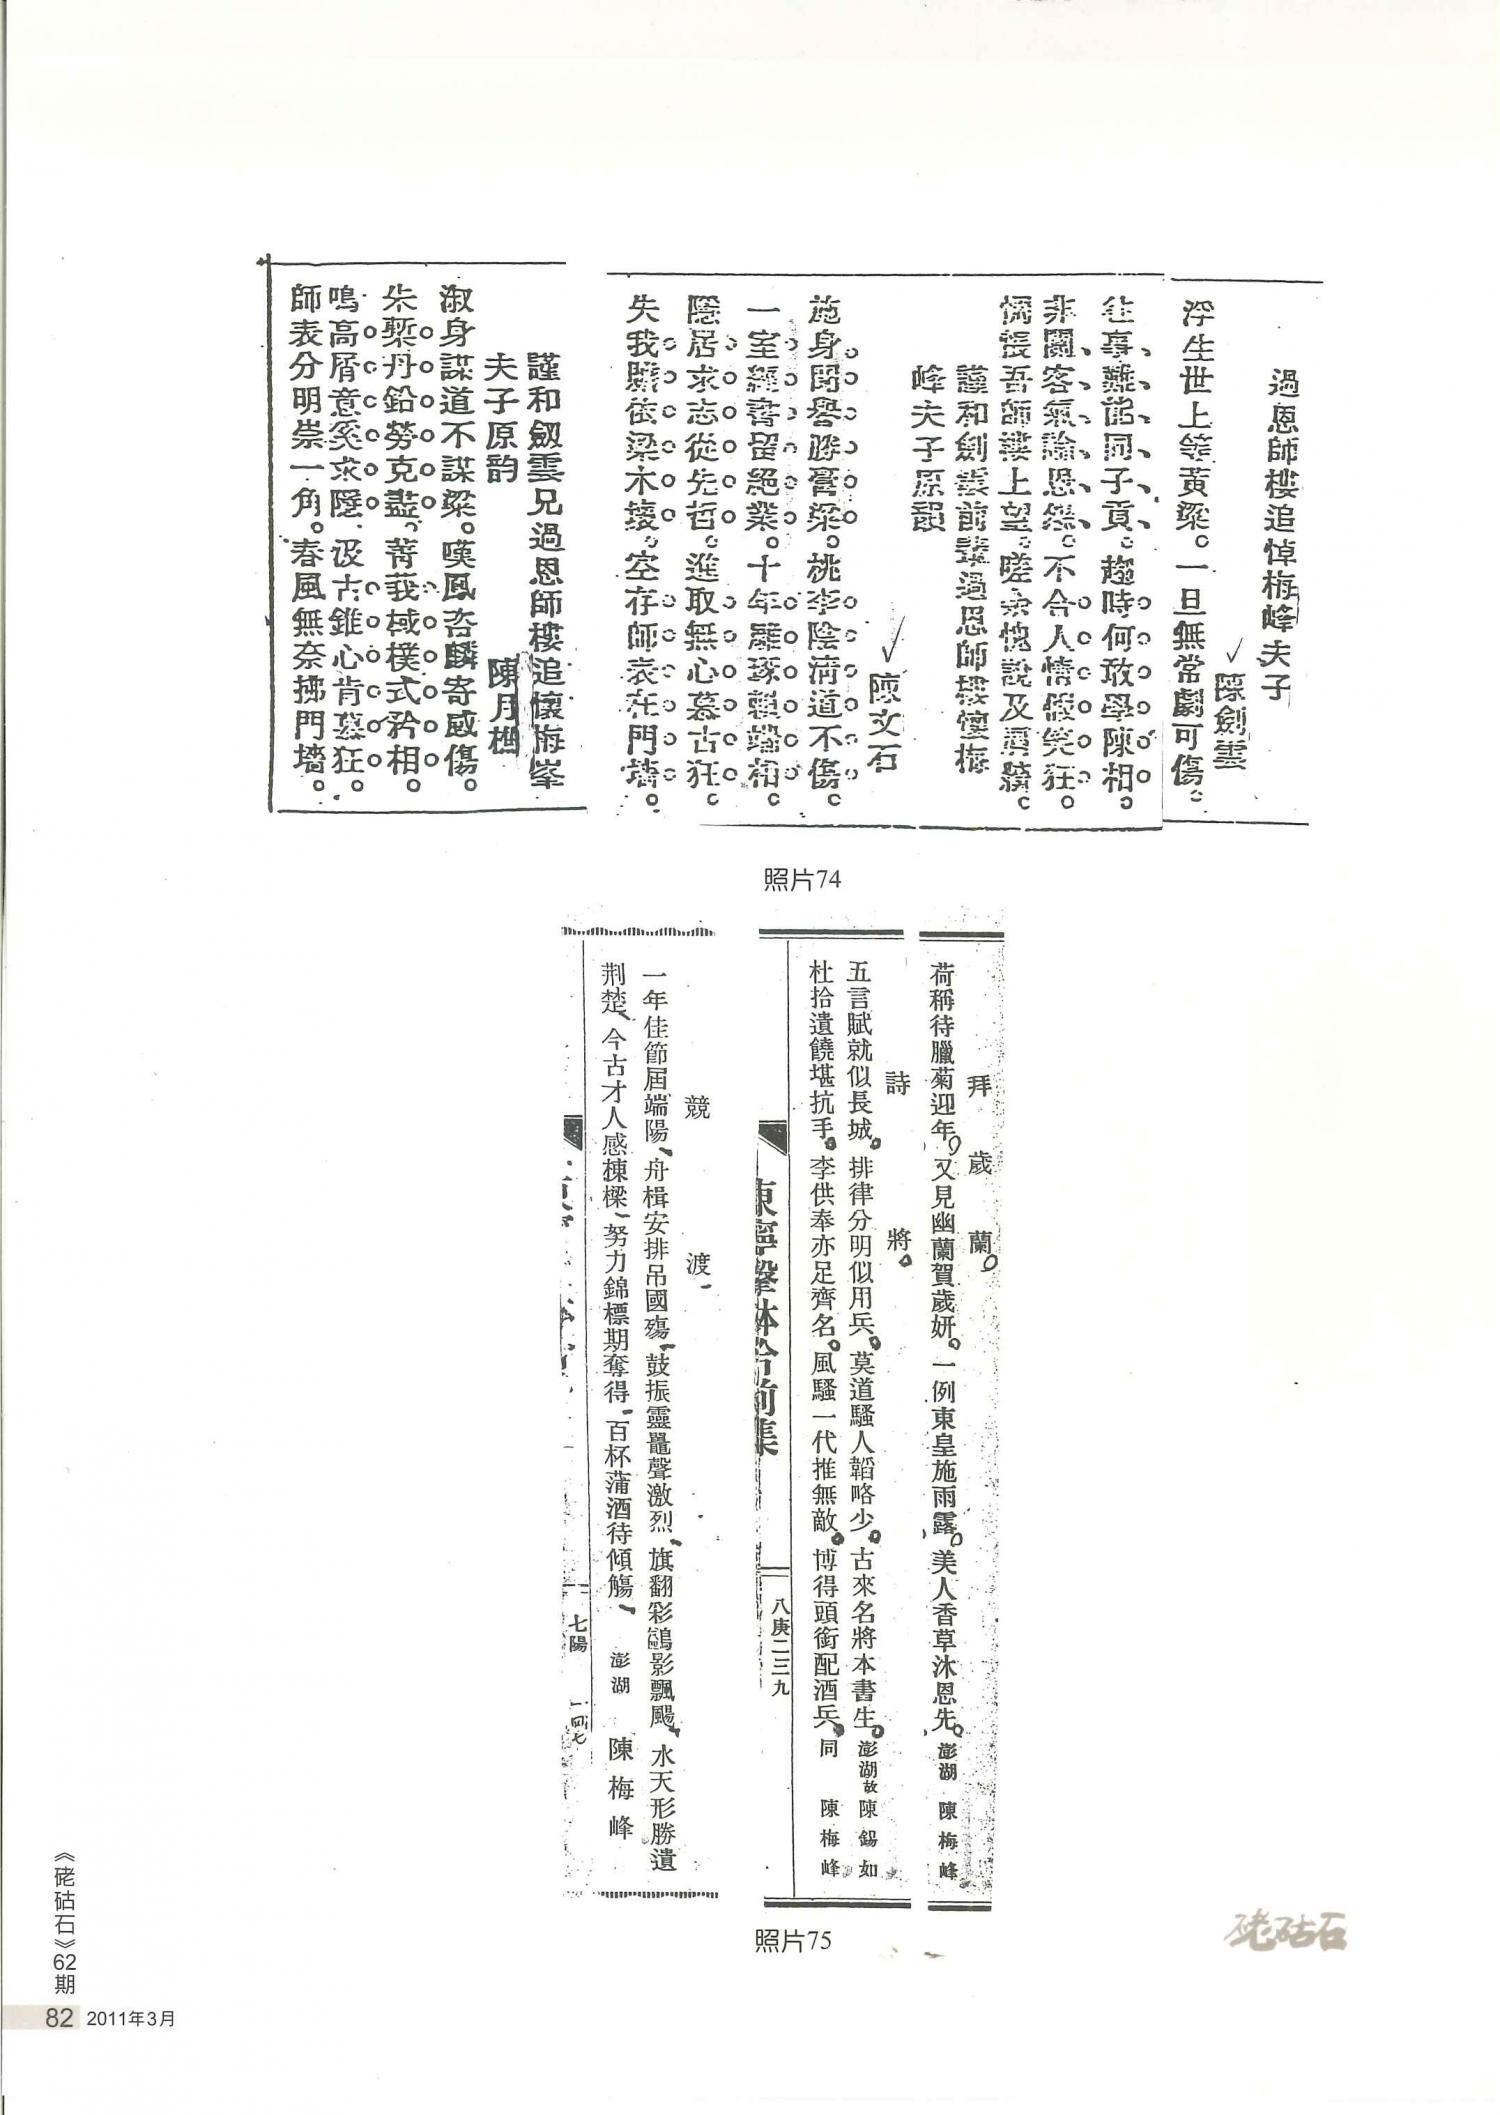 過恩師樓追悼梅峰夫子
陳劍雲
浮生世上等黃粱。一旦無常劇可傷。
往事難能同子貢。趨時何敢學陳相。
非關客氣論恩怨。不合人情假笑狂。
惆悵吾師樓上望。嗟余愧說及肩牆。
謹和劍雲前輩過恩師樓懷梅
峰夫子原韻
陳文石
施身聞譽勝膏粱。桃李陰清道不傷。
一室經書留絕業。十年雕琢賴端相。
隱居求志從先哲。進取無心慕古狂。
失我驥依梁木壞。空存師表在門墻。
謹和劔雲兄過恩師樓追懷梅峯
夫子原韵
陳月樵
淑身謀道不謀粱。嘆鳳吝麟寄感傷。
朱槧丹鉛勞克盡。菁莪棫樸式矜相。
鳴高屑意奚求隱。汲古錐心肯慕狂。
師表分明崇一角。春風無奈拂門墻。
照片74
拜歲蘭
荷稱待臘菊迎年。又見幽蘭賀歲妍。一例東皇施雨露。美人香草沐恩先。澎湖 陳梅峰
詩將
五言賦就似長城。排律分明似用兵。莫道騷人韜略少。古來名將本書生。澎湖故陳錫如
杜拾遺饒堪抗手。李供奉亦足齊名。風騷一代推無敵。博得頭銜配酒兵。同 陳梅峰
東寧擊鉢吟前集
八庚二三九
競渡
一年佳節屆端陽、舟楫安排吊國殤、鼓振靈鼉聲激烈、旗翻彩鷁影飄颺、水天形勝遺
荆楚、今古才人感棟樑、努力錦標期奪得、百杯蒲酒待傾觴、澎湖 陳梅峰
七陽 一四七
照片75
硓𥑮石
《硓𥑮石》62期
82 2011年3月